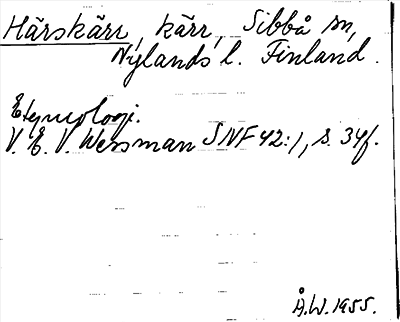 Härskärr, kärr, Sibbå sn,
Nylands l. Finland.
Etymologi.
V. E. V. Wessman SNF 42:1, s. 34f.
Å.W. 1955.